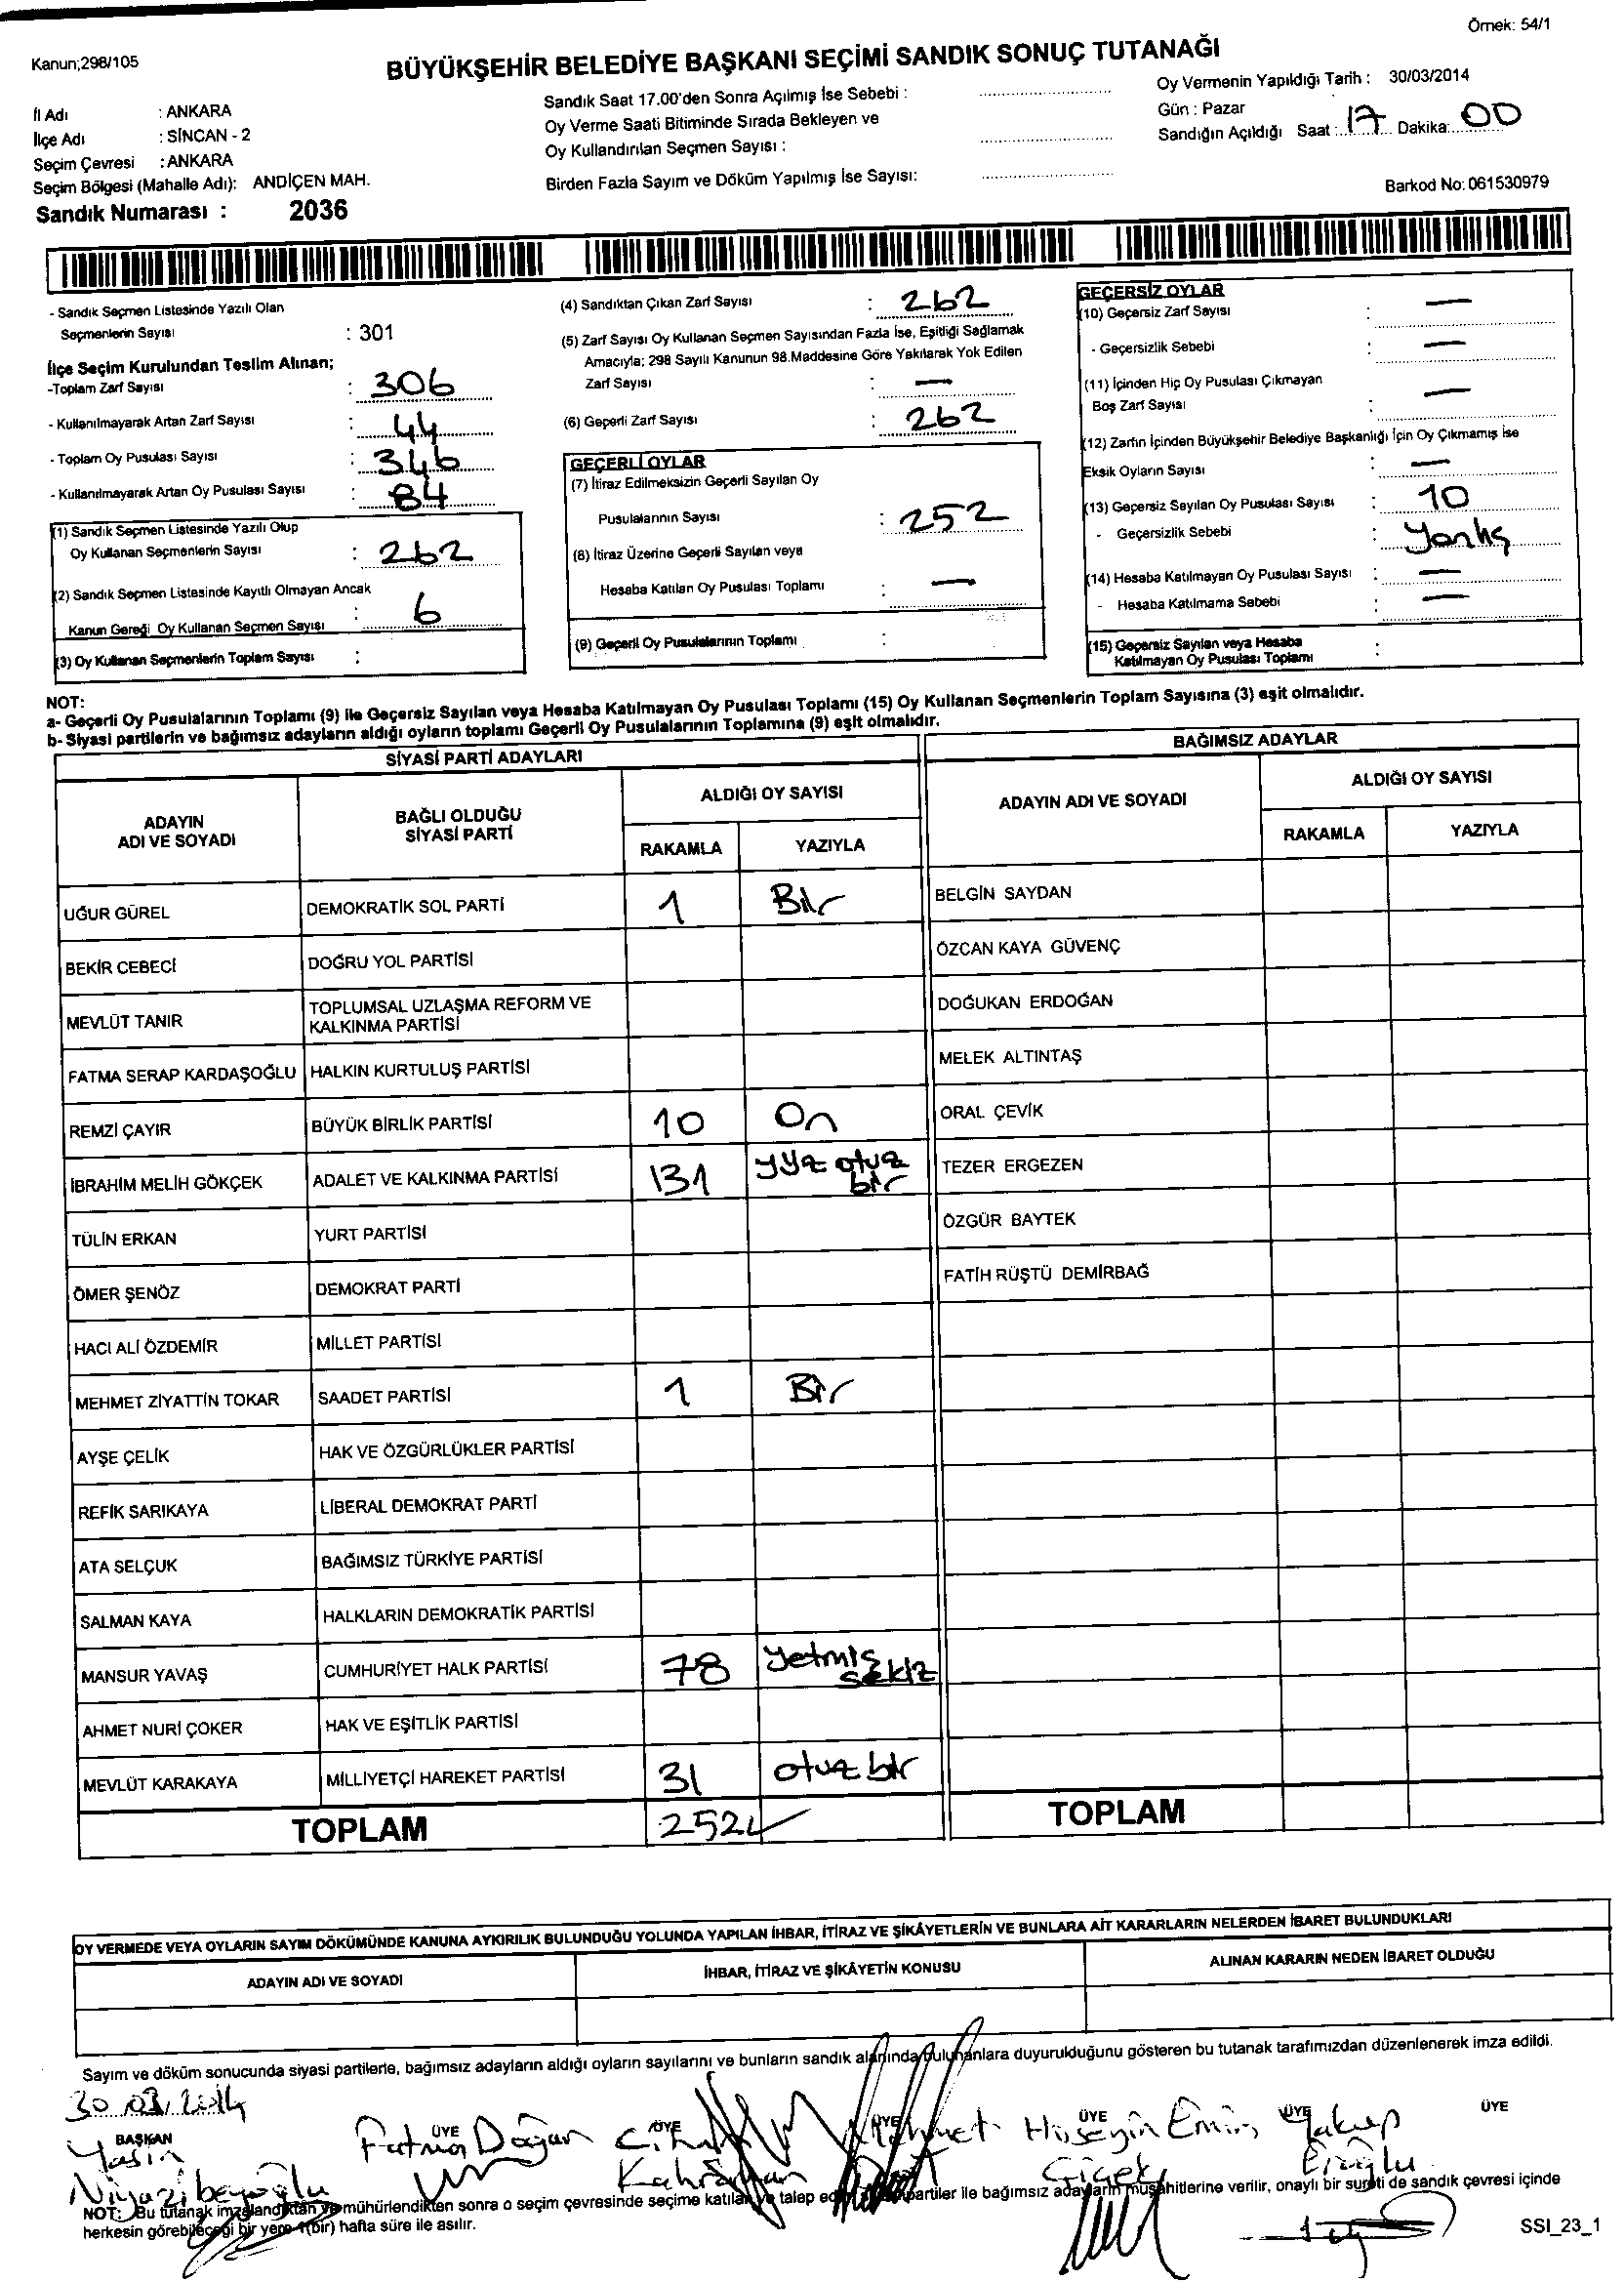 Örnek: 54/1
Kanun;298/105
BÜYÜKŞEHİR BELEDİYE BAŞKANI SEÇİMİ SANDIK SONUÇ TUTANAĞI
İl Adı : ANKARA
İlçe Adı : SİNCAN - 2
Seçim Çevresi : ANKARA
Seçim Bölgesi (Mahalle Adı): ANDİÇEN MAH.
Sandık Numarası : 2036
Sandık Saat 17.00'den Sonra Açılmış İse Sebebi :
Oy Verme Saati Bitiminde Sırada Bekleyen ve
Oy Kullandırılan Seçmen Sayısı :
Birden Fazla Sayım ve Döküm Yapılmış İse Sayısı:
Oy Vermenin Yapıldığı Tarih : 30/03/2014
Gün : Pazar
Sandığın Açıldığı Saat : 17 Dakika: 00
Barkod No: 061530979
- Sandık Seçmen Listesinde Yazılı Olan
Seçmenlerin Sayısı : 301
İlçe Seçim Kurulundan Teslim Alınan;
-Toplam Zarf Sayısı : 306
- Kullanılmayarak Artan Zarf Sayısı : 44
- Toplam Oy Pusulası Sayısı : 346
- Kullanılmayarak Artan Oy Pusulası Sayısı : 84
(1) Sandık Seçmen Listesinde Yazılı Olup
Oy Kullanan Seçmenlerin Sayısı : 262
(2) Sandık Seçmen Listesinde Kayıtlı Olmayan Ancak
Kanun Gereği Oy Kullanan Seçmen Sayısı : 6
(3) Oy Kullanan Seçmenlerin Toplam Sayısı :
(4) Sandıktan Çıkan Zarf Sayısı : 262
(5) Zarf Sayısı Oy Kullanan Seçmen Sayısından Fazla İse, Eşitliği Sağlamak
Amacıyla; 298 Sayılı Kanunun 98.Maddesine Göre Yakılarak Yok Edilen
Zarf Sayısı : —
(6) Geçerli Zarf Sayısı : 262
GEÇERLİ OYLAR
(7) İtiraz Edilmeksizin Geçerli Sayılan Oy
Pusulalarının Sayısı : 252
(8) İtiraz Üzerine Geçerli Sayılan veya
Hesaba Katılan Oy Pusulası Toplamı : —
(9) Geçerli Oy Pusulalarının Toplamı :
GEÇERSİZ OYLAR
(10) Geçersiz Zarf Sayısı : —
- Geçersizlik Sebebi : —
(11) İçinden Hiç Oy Pusulası Çıkmayan
Boş Zarf Sayısı : —
(12) Zarfın İçinden Büyükşehir Belediye Başkanlığı İçin Oy Çıkmamış İse
Eksik Oyların Sayısı : —
(13) Geçersiz Sayılan Oy Pusulası Sayısı : 10
- Geçersizlik Sebebi : Yanlış
(14) Hesaba Katılmayan Oy Pusulası Sayısı : —
- Hesaba Katılmama Sebebi : —
(15) Geçersiz Sayılan veya Hesaba
Katılmayan Oy Pusulası Toplamı :
NOT:
a- Geçerli Oy Pusulalarının Toplamı (9) ile Geçersiz Sayılan veya Hesaba Katılmayan Oy Pusulası Toplamı (15) Oy Kullanan Seçmenlerin Toplam Sayısına (3) eşit olmalıdır.
b- Siyasi partilerin ve bağımsız adayların aldığı oyların toplamı Geçerli Oy Pusulalarının Toplamına (9) eşit olmalıdır.
SİYASİ PARTİ ADAYLARI
ADAYIN ADI VE SOYADI BAĞLI OLDUĞU SİYASİ PARTİ ALDIĞI OY SAYISI
RAKAMLA YAZIYLA
UĞUR GÜREL DEMOKRATİK SOL PARTİ 1 Bir
BEKİR CEBECİ DOĞRU YOL PARTİSİ
MEVLÜT TANIR TOPLUMSAL UZLAŞMA REFORM VE
KALKINMA PARTİSİ
FATMA SERAP KARDAŞOĞLU HALKIN KURTULUŞ PARTİSİ
REMZİ ÇAYIR BÜYÜK BİRLİK PARTİSİ 10 On
İBRAHİM MELİH GÖKÇEK ADALET VE KALKINMA PARTİSİ 131 yüz otuz
bir
TÜLİN ERKAN YURT PARTİSİ
ÖMER ŞENÖZ DEMOKRAT PARTİ
HACI ALİ ÖZDEMİR MİLLET PARTİSİ
MEHMET ZİYATTİN TOKAR SAADET PARTİSİ 1 Bir
AYŞE ÇELİK HAK VE ÖZGÜRLÜKLER PARTİSİ
REFİK SARIKAYA LİBERAL DEMOKRAT PARTİ
ATA SELÇUK BAĞIMSIZ TÜRKİYE PARTİSİ
SALMAN KAYA HALKLARIN DEMOKRATİK PARTİSİ
MANSUR YAVAŞ CUMHURİYET HALK PARTİSİ 78 Yetmiş
sekiz
AHMET NURİ ÇOKER HAK VE EŞİTLİK PARTİSİ
MEVLÜT KARAKAYA MİLLİYETÇİ HAREKET PARTİSİ 31 otuz bir
TOPLAM 252
BAĞIMSIZ ADAYLAR
ADAYIN ADI VE SOYADI ALDIĞI OY SAYISI
RAKAMLA YAZIYLA
BELGİN SAYDAN
ÖZCAN KAYA GÜVENÇ
DOĞUKAN ERDOĞAN
MELEK ALTINTAŞ
ORAL ÇEVİK
TEZER ERGEZEN
ÖZGÜR BAYTEK
FATİH RÜŞTÜ DEMİRBAĞ
TOPLAM
OY VERMEDE VEYA OYLARIN SAYIM DÖKÜMÜNDE KANUNA AYKIRILIK BULUNDUĞU YOLUNDA YAPILAN İHBAR, İTİRAZ VE ŞİKÂYETLERİN VE BUNLARA AİT KARARLARIN NELERDEN İBARET BULUNDUKLARI
ADAYIN ADI VE SOYADI İHBAR, İTİRAZ VE ŞİKÂYETİN KONUSU ALINAN KARARIN NEDEN İBARET OLDUĞU
Sayım ve döküm sonucunda siyasi partilerle, bağımsız adayların aldığı oyların sayılarını ve bunların sandık alanında bulunanlara duyurulduğunu gösteren bu tutanak tarafımızdan düzenlenerek imza edildi.
30.03.2014
BAŞKAN ÜYE ÜYE ÜYE ÜYE ÜYE ÜYE
Yasin Fatma Doğan Mehmet Hüseyin Emin Yakup
Niyazibeyoğlu Kahraman Çiçek Eroğlu
NOT: Bu tutanak imzalandıktan ve mühürlendikten sonra o seçim çevresinde seçime katılan ve talep eden partiler ile bağımsız adayların müşahitlerine verilir, onaylı bir sureti de sandık çevresi içinde
herkesin görebileceği bir yere 1(bir) hafta süre ile asılır.
SSI_23_1